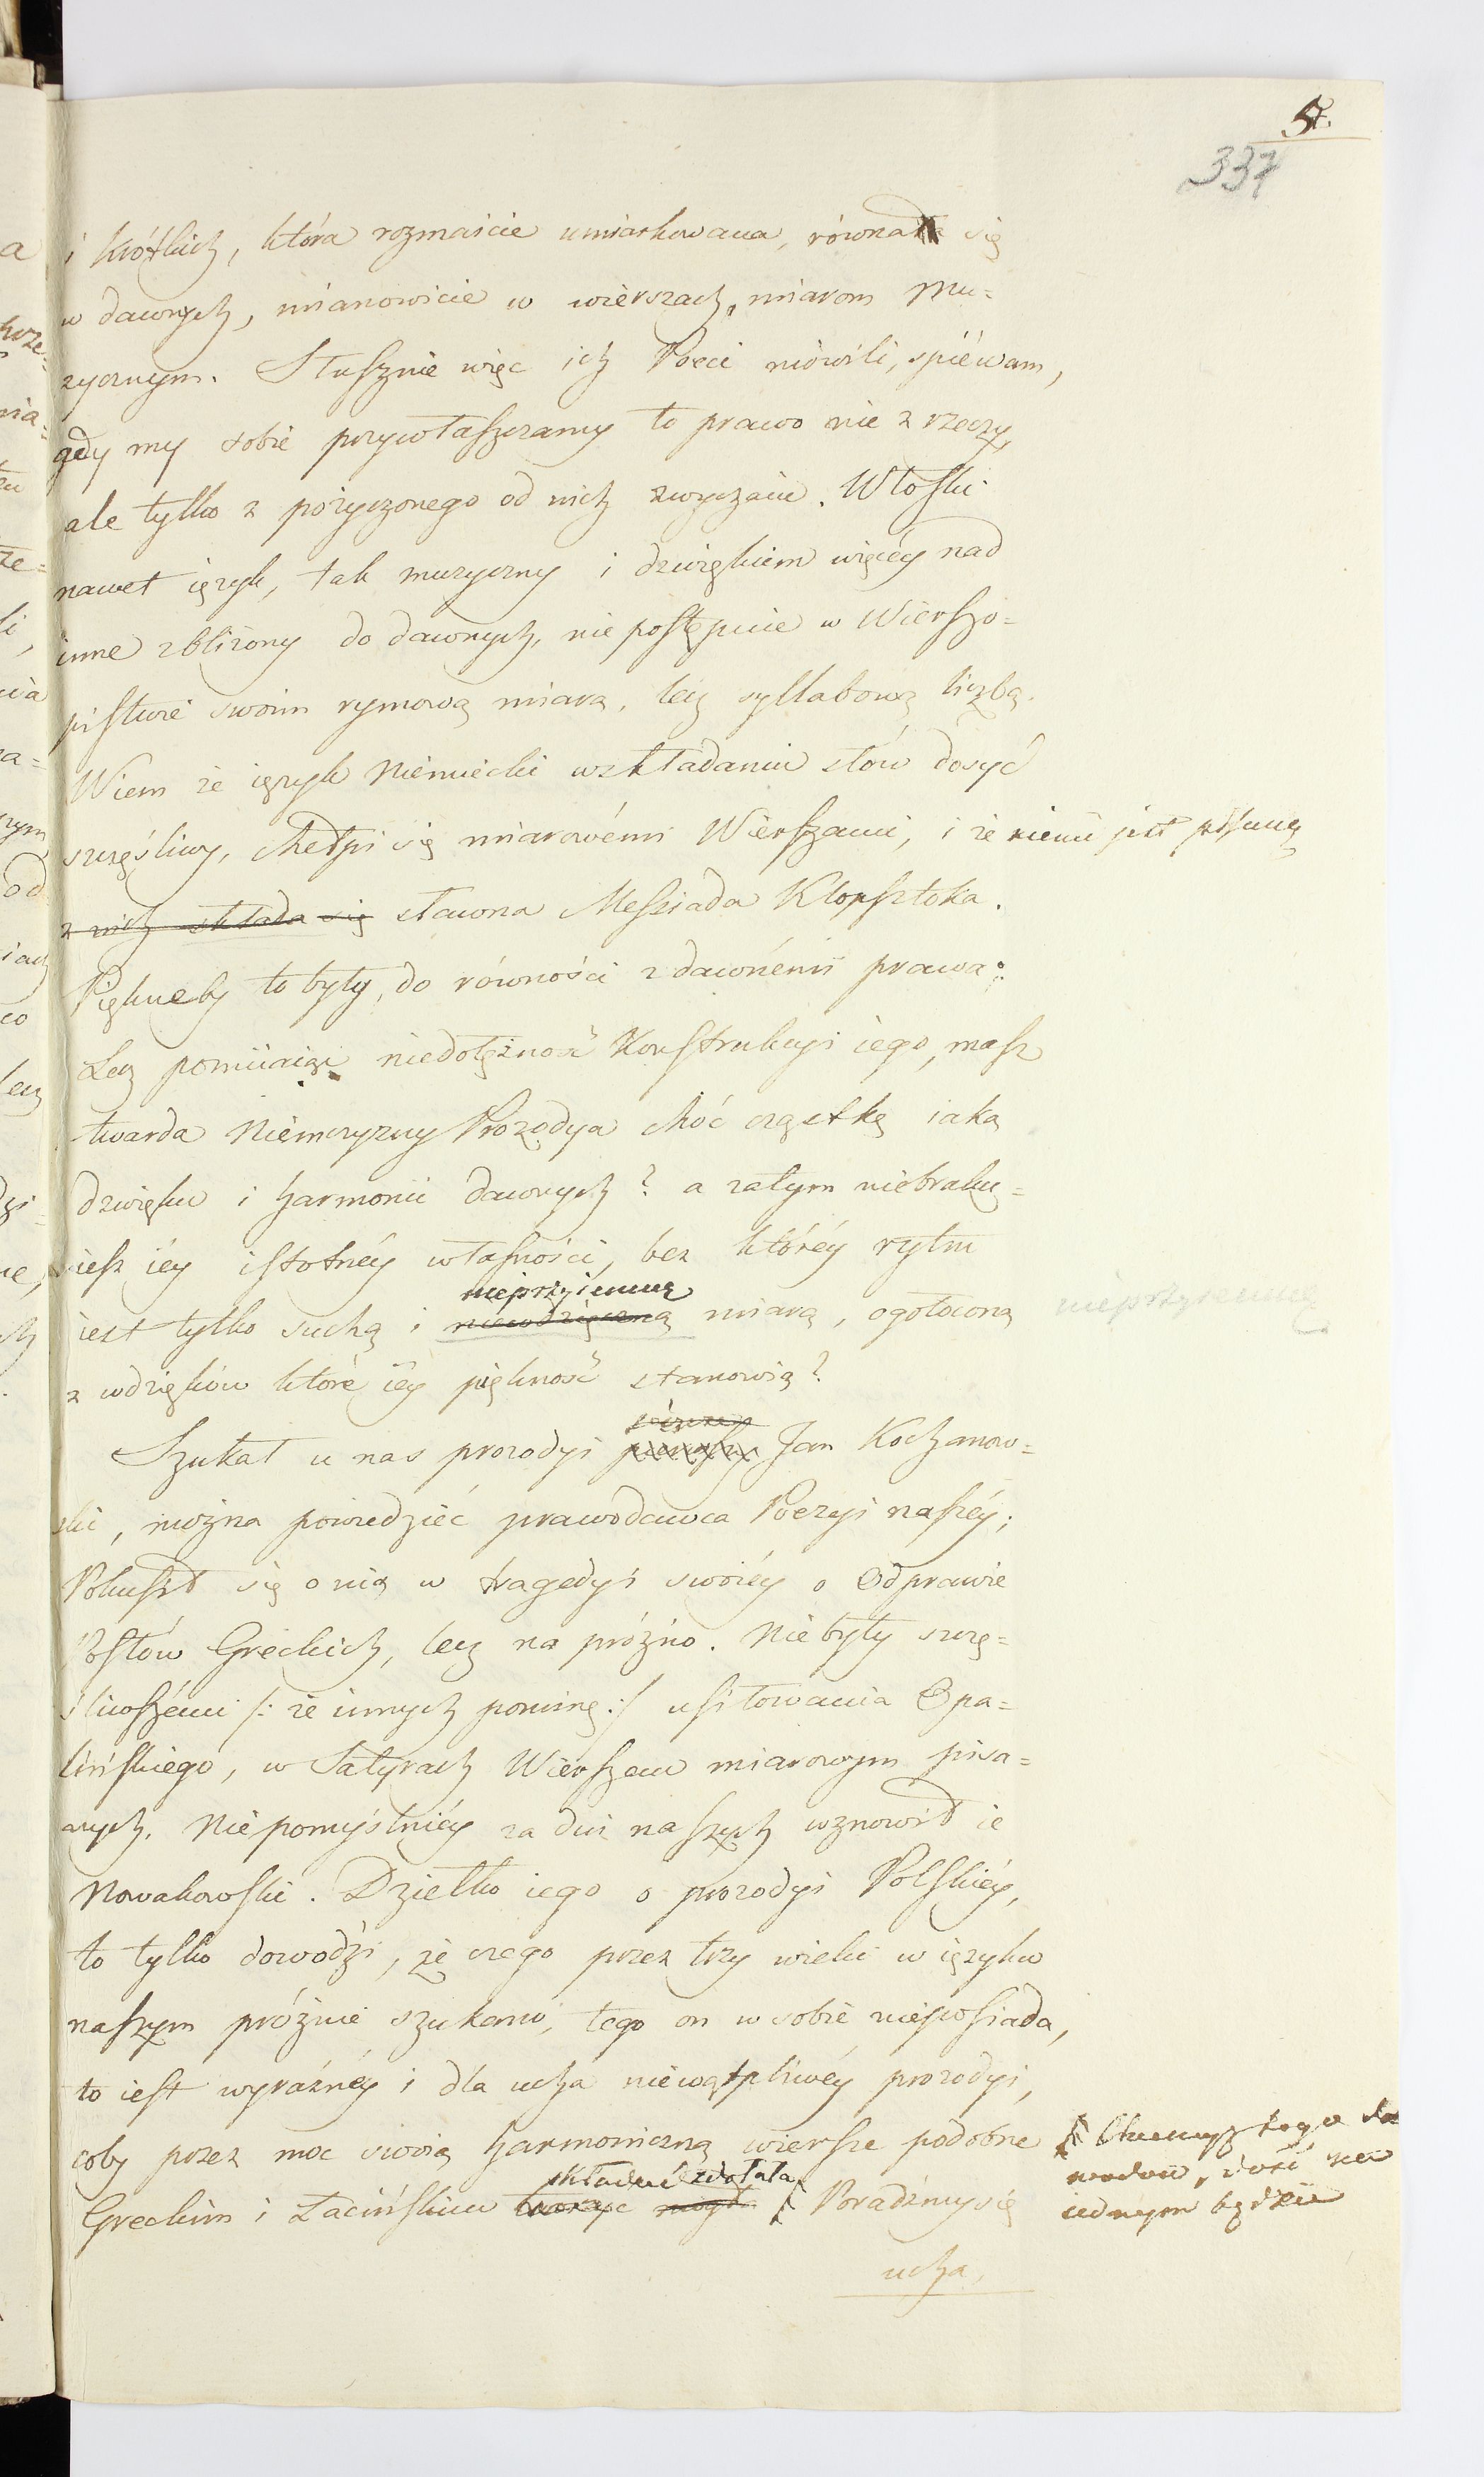 5.
337
i krótkich, która rozmaicie umiarkowana, równała się
w dawnych, mianowicie w wierszach, miarom mu=
zycznym. Słusznie więc ich Poeci mówili, spiéwam,
gdy my sobie przywłaszczamy to prawo nie z rzeczy,
ale tylko z pożyczonego od nich zwyczaiu. Włoski
nawet ięzyk, tak muzyczny i dzwiękiem więcéy nad
inne zbliżony do dawnych, nie postępuie w Wierszo=
pistwie swoim rymową miarą, lecz syllabową liczbą.
Wiem że ięzyk Niemiecki wskładaniu słów dosyć
szczęśliwy, chełpi się miarowémi Wierszami, i że niemi jest pisaną
z nich składa się sławna Messiada Klopsztoka.
Piękneby to były, do równości z dawnémi prawa:
Lecz pomiiaiąc niedołężność Konstrukcyi iego, masz
twarda Niemczyzny Prozodya choć cząstkę iaką
dzwięku i harmonii dawnych? a zatym niebraku=
iesz iéy istotnéy własności, bez któréy rytm
nieprzyiemną
iest tylko suchą i niewdzięczną miarą, ogołoconą nieprzyiemną
z wdzięków które iéy piękność stanowią?
Szukał u nas prozodyi pierwszy Jan Kochanow=
ski, można powiedzieć prawodawca Poezyi naszéy;
Pokusił się o nią w tragedyi swoiéy o Odprawie
Posłów Greckich, lecz na próżno. Nie były szczę=
śliwszémi /: że innych pominę :/ usiłowania Opa=
lińskiego, w Satyrach Wierszem miarowym pisa=
nych. Niepomyślniéy za dni naszych wznowił ie
Nowakowski. Dziełko iego o prozodyi Polskiéy,
to tylko dowodzi, że czego przez trzy wieki w ięzyku
naszym próżnie szukano, tego on w sobie nieposiada,
to iest wyraźnéy i dla ucha niewątpliwéy prozodyi,
coby przez moc swoią harmoniczną wiersze podobne
składać zdołała
Greckim i Łacińskim tworzyć mogła Poradźmy się
Chcemyż tego do
wodów, dość na
iednym będzie
ucha,